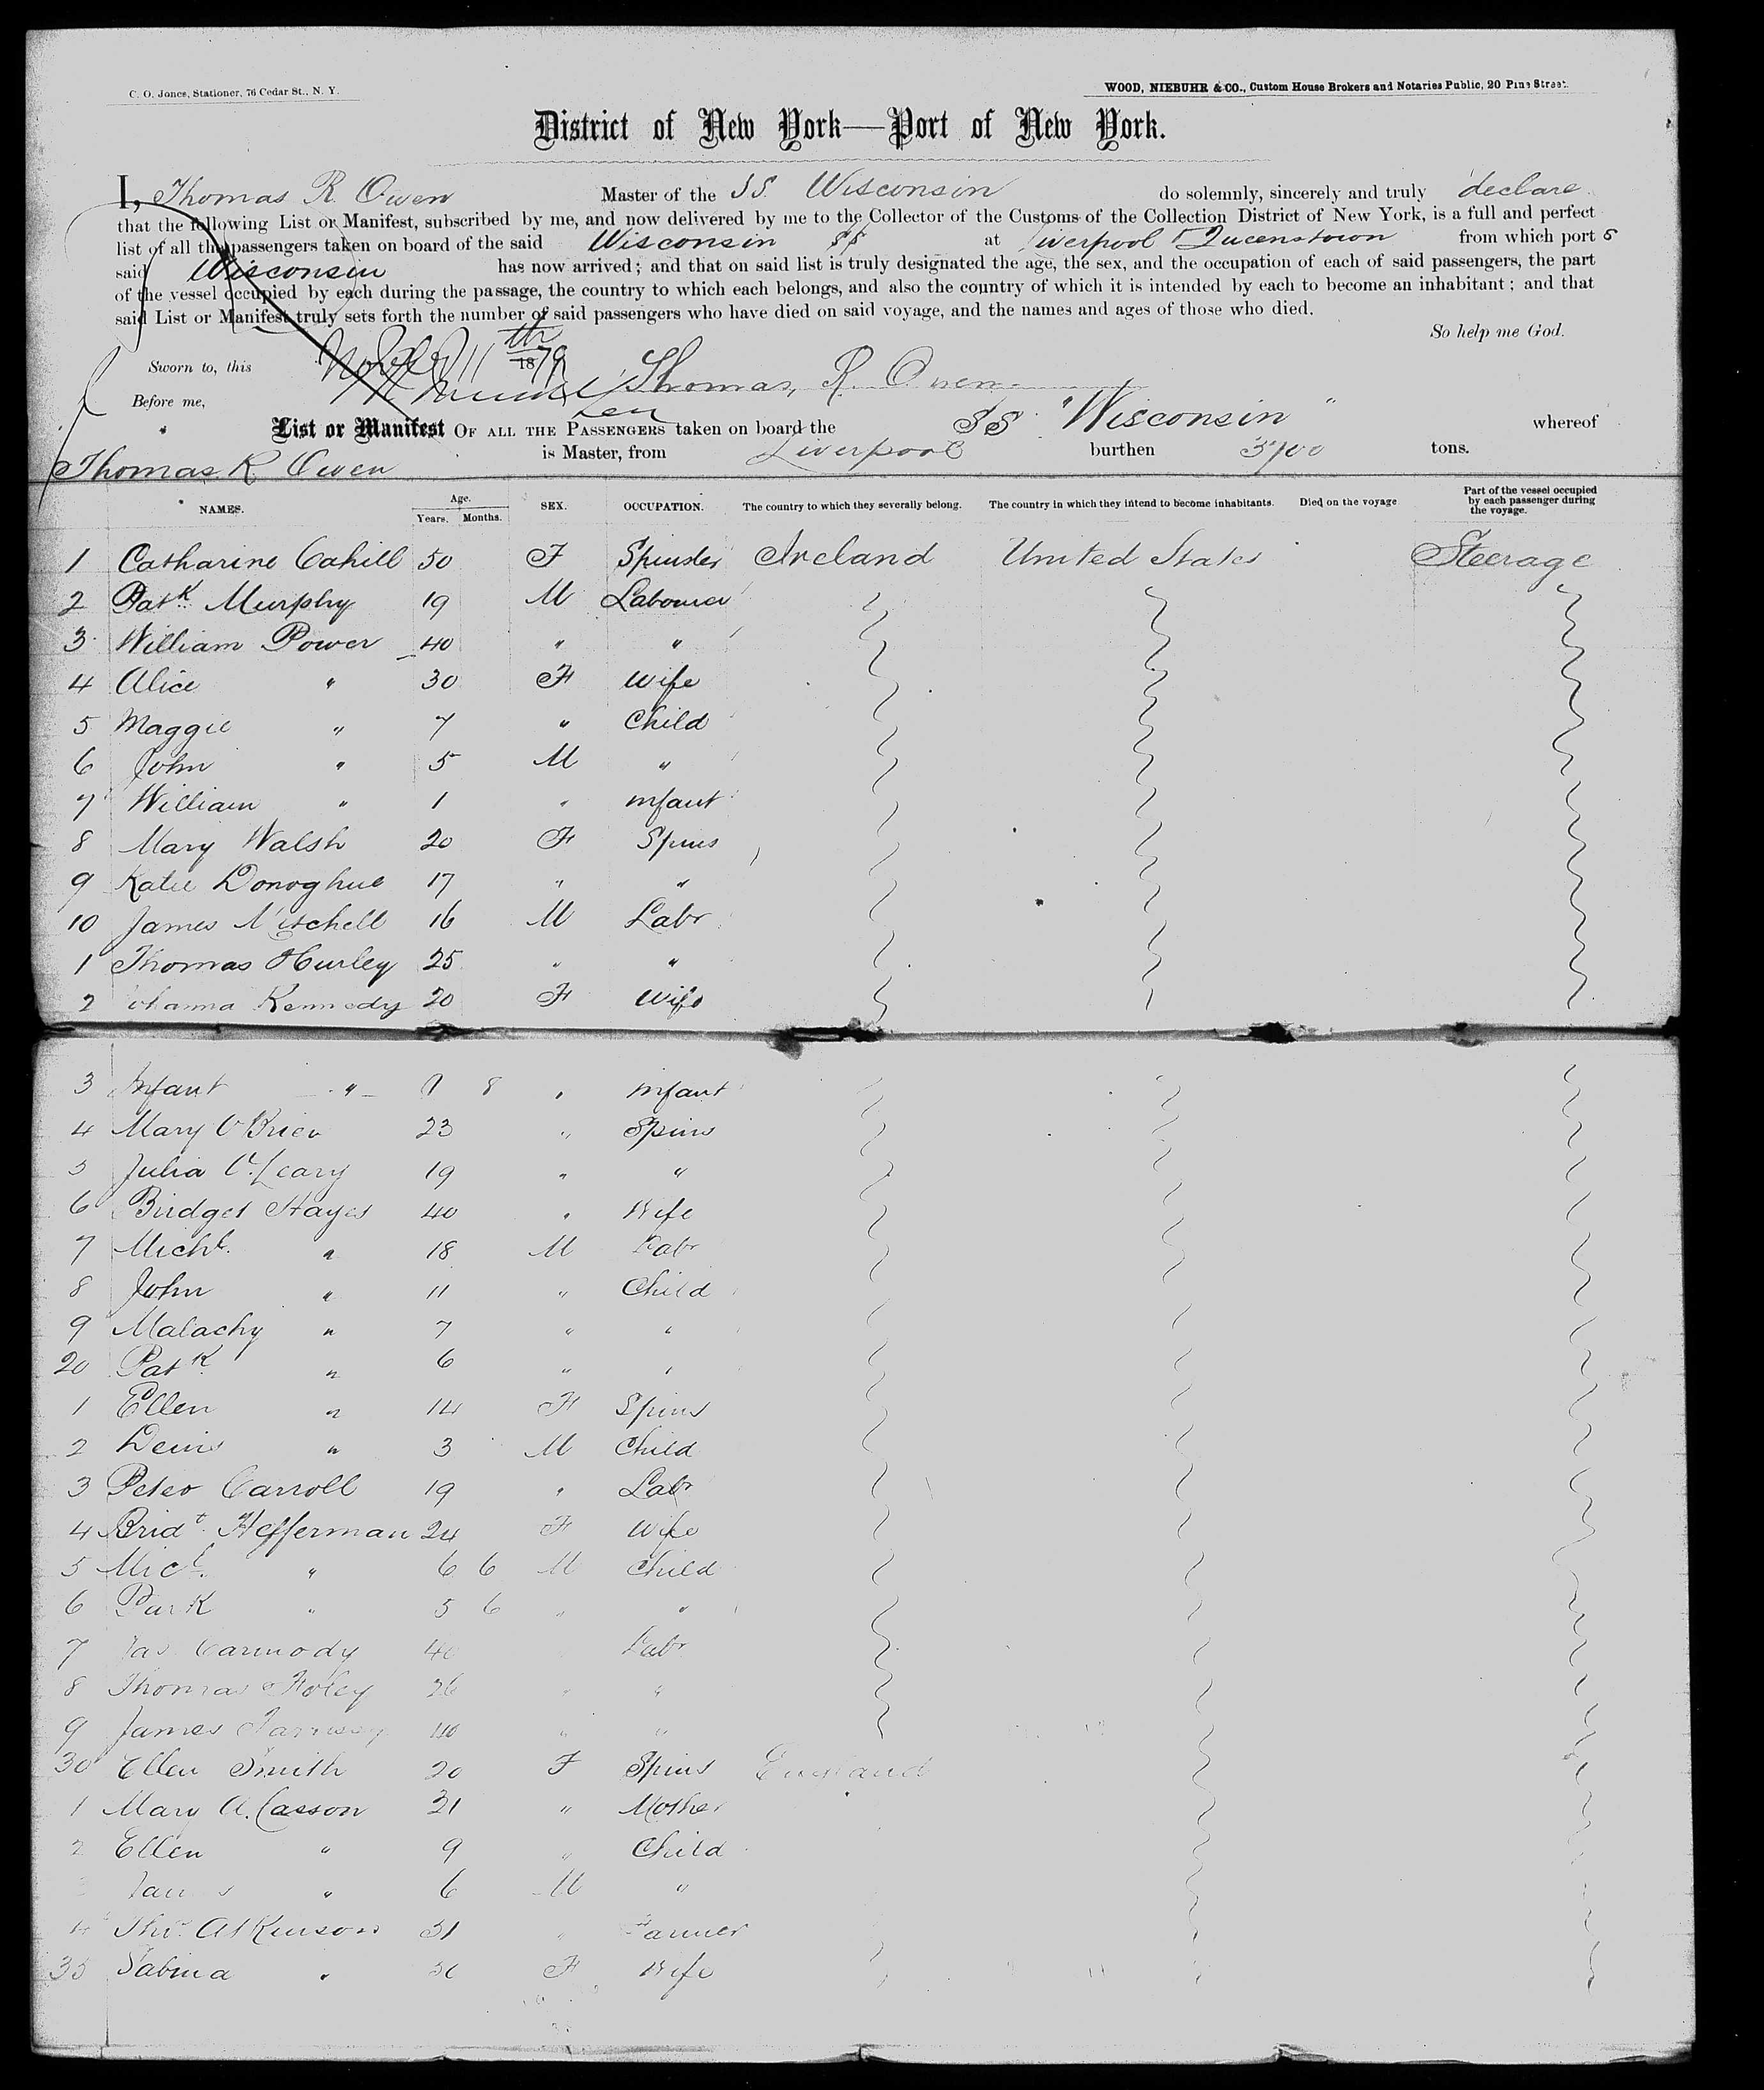 C. O. Jones, Stationer, 76 Cedar St., N. Y.
WOOD, NIEBUHR & CO., Custom House Brokers and Notaries Public, 20 Pine Street.
District of New York—Port of New York.
I, Thomas R. Owen Master of the SS. Wisconsin do solemnly, sincerely and truly declare
that the following List or Manifest, subscribed by me, and now delivered by me to the Collector of the Customs of the Collection District of New York, is a full and perfect
list of all the passengers taken on board of the said Wisconsin SS at Liverpool Queenstown from which port s
said Wisconsin has now arrived; and that on said list is truly designated the age, the sex, and the occupation of each of said passengers, the part
of the vessel occupied by each during the passage, the country to which each belongs, and also the country of which it is intended by each to become an inhabitant; and that
said List or Manifest truly sets forth the number of said passengers who have died on said voyage, and the names and ages of those who died.
So help me God.
Sworn to, this 11th 1879 Thomas, R. Owen
Before me,
List or Manifest OF ALL THE PASSENGERS taken on board the SS. "Wisconsin" whereof
Thomas R Owen is Master, from Liverpool burthen 3700 tons.
NAMES. Age. Years. Months. SEX. OCCUPATION. The country to which they severally belong. The country in which they intend to become inhabitants. Died on the voyage Part of the vessel occupied by each passenger during the voyage.
1 Catharine Cahill 50 F Spinster Ireland United States Steerage
2 Patk. Murphy 19 M Labourer
3 William Power 40 " "
4 Alice " 30 F Wife
5 Maggie " 7 " Child
6 John " 5 M "
7 William " 1 " infant
8 Mary Walsh 20 F Spins
9 Katie Donoghue 17 " "
10 James Mitchell 16 M Labr
1 Thomas Hurley 25 " "
2 Johanna Kennedy 20 F Wife
3 Infant " 8 " infant
4 Mary O'Brien 23 " Spins
5 Julia O'Leary 19 " "
6 Bridget Hayes 40 " Wife
7 Michl. " 18 M Labr
8 John " 11 " Child
9 Malachy " 7 " "
20 Patk. " 6 " "
1 Ellen " 14 F Spins
2 Denis " 3 M Child
3 Peter Carroll 19 " Labr
4 Bridt. Hefferman 24 F Wife
5 Micl. " 6 6 M Child
6 Patk " 5 6 " "
7 Jas Carmody 40 Labr
8 Thomas Foley 26 " "
9 James 40 " "
30 Ellen Smith 20 F Spins England
1 Mary A. Casson 31 " Mother
2 Ellen " 9 " Child
James " 6 M "
4 Thos. Atkinson 31 " Farmer
35 Sabina " F Wife